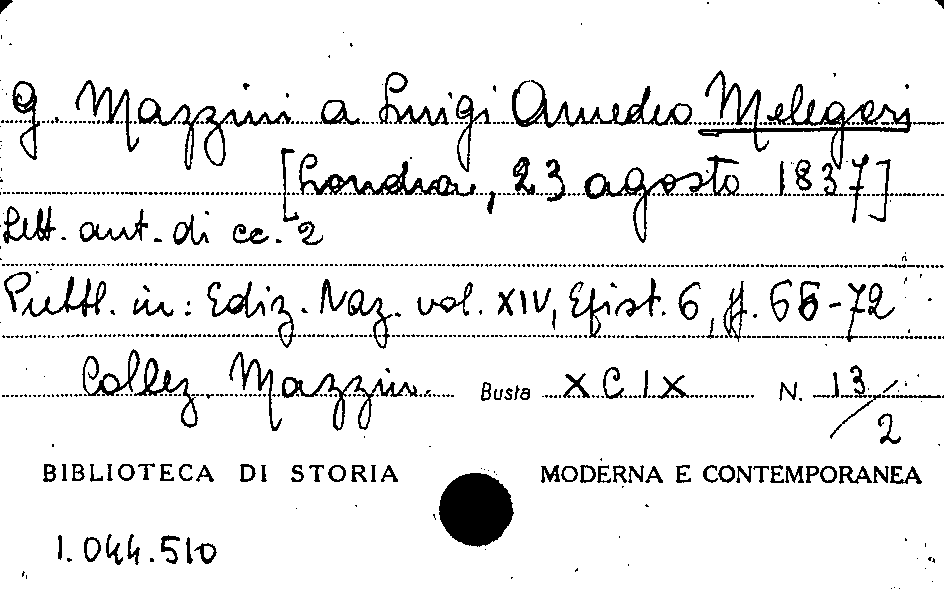 G. Mazzini a Luigi Amedeo Melegari
[Londra, 23 agosto 1837]
Lett. aut. di cc. 2
Pubbl. in: Ediz. Naz. vol. XIV, Epist. 6, pp. 66-72
Collez. Mazzin. Busta XCIX N. 13/2
BIBLIOTECA DI STORIA MODERNA E CONTEMPORANEA
1.044.510